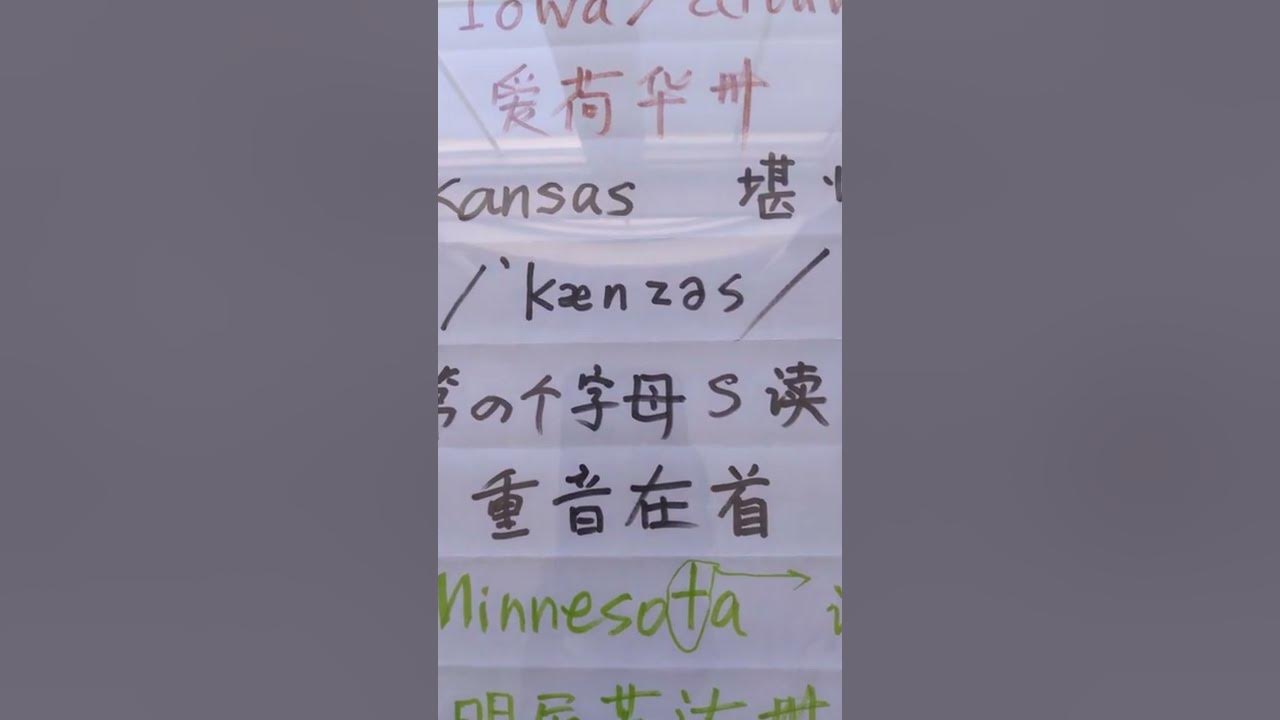 Iowa /
爱荷华州
Kansas 堪
/ˈkænzəs/
第の个字母 S 读
重音在首
Minnesota
明尼苏达州